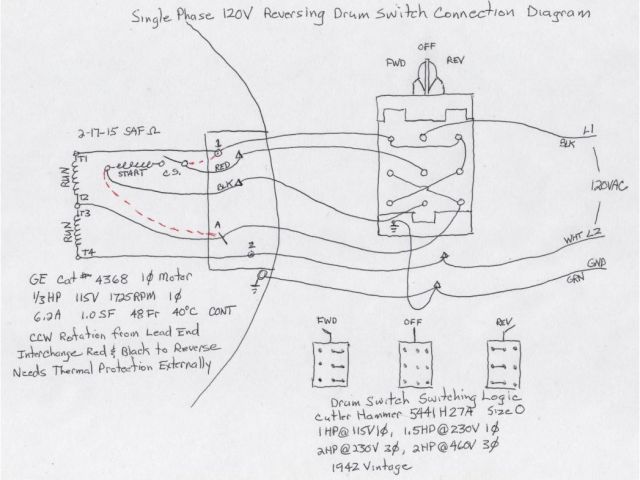 Single Phase 120V Reversing Drum Switch Connection Diagram
OFF
FWD
REV
2-17-15 SAF Ω
T1
RUN
START
C.S.
1
RED
BLK
T2
T3
RUN
A
T4
2
L1
BLK
120VAC
WHT L2
GND
GRN
GE Cat # 4368 1Φ Motor
1/3HP 115V 1725RPM 1Φ
6.2A 1.0SF 48Fr 40°C CONT
CCW Rotation from Lead End
Interchange Red & Black to Reverse
Needs Thermal Protection Externally
FWD
OFF
REV
Drum Switch Switching Logic
Cutler Hammer 5441H27A Size 0
1HP@115V1Φ, 1.5HP@230V 1Φ
2HP@230V 3Φ, 2HP@460V 3Φ
1942 Vintage